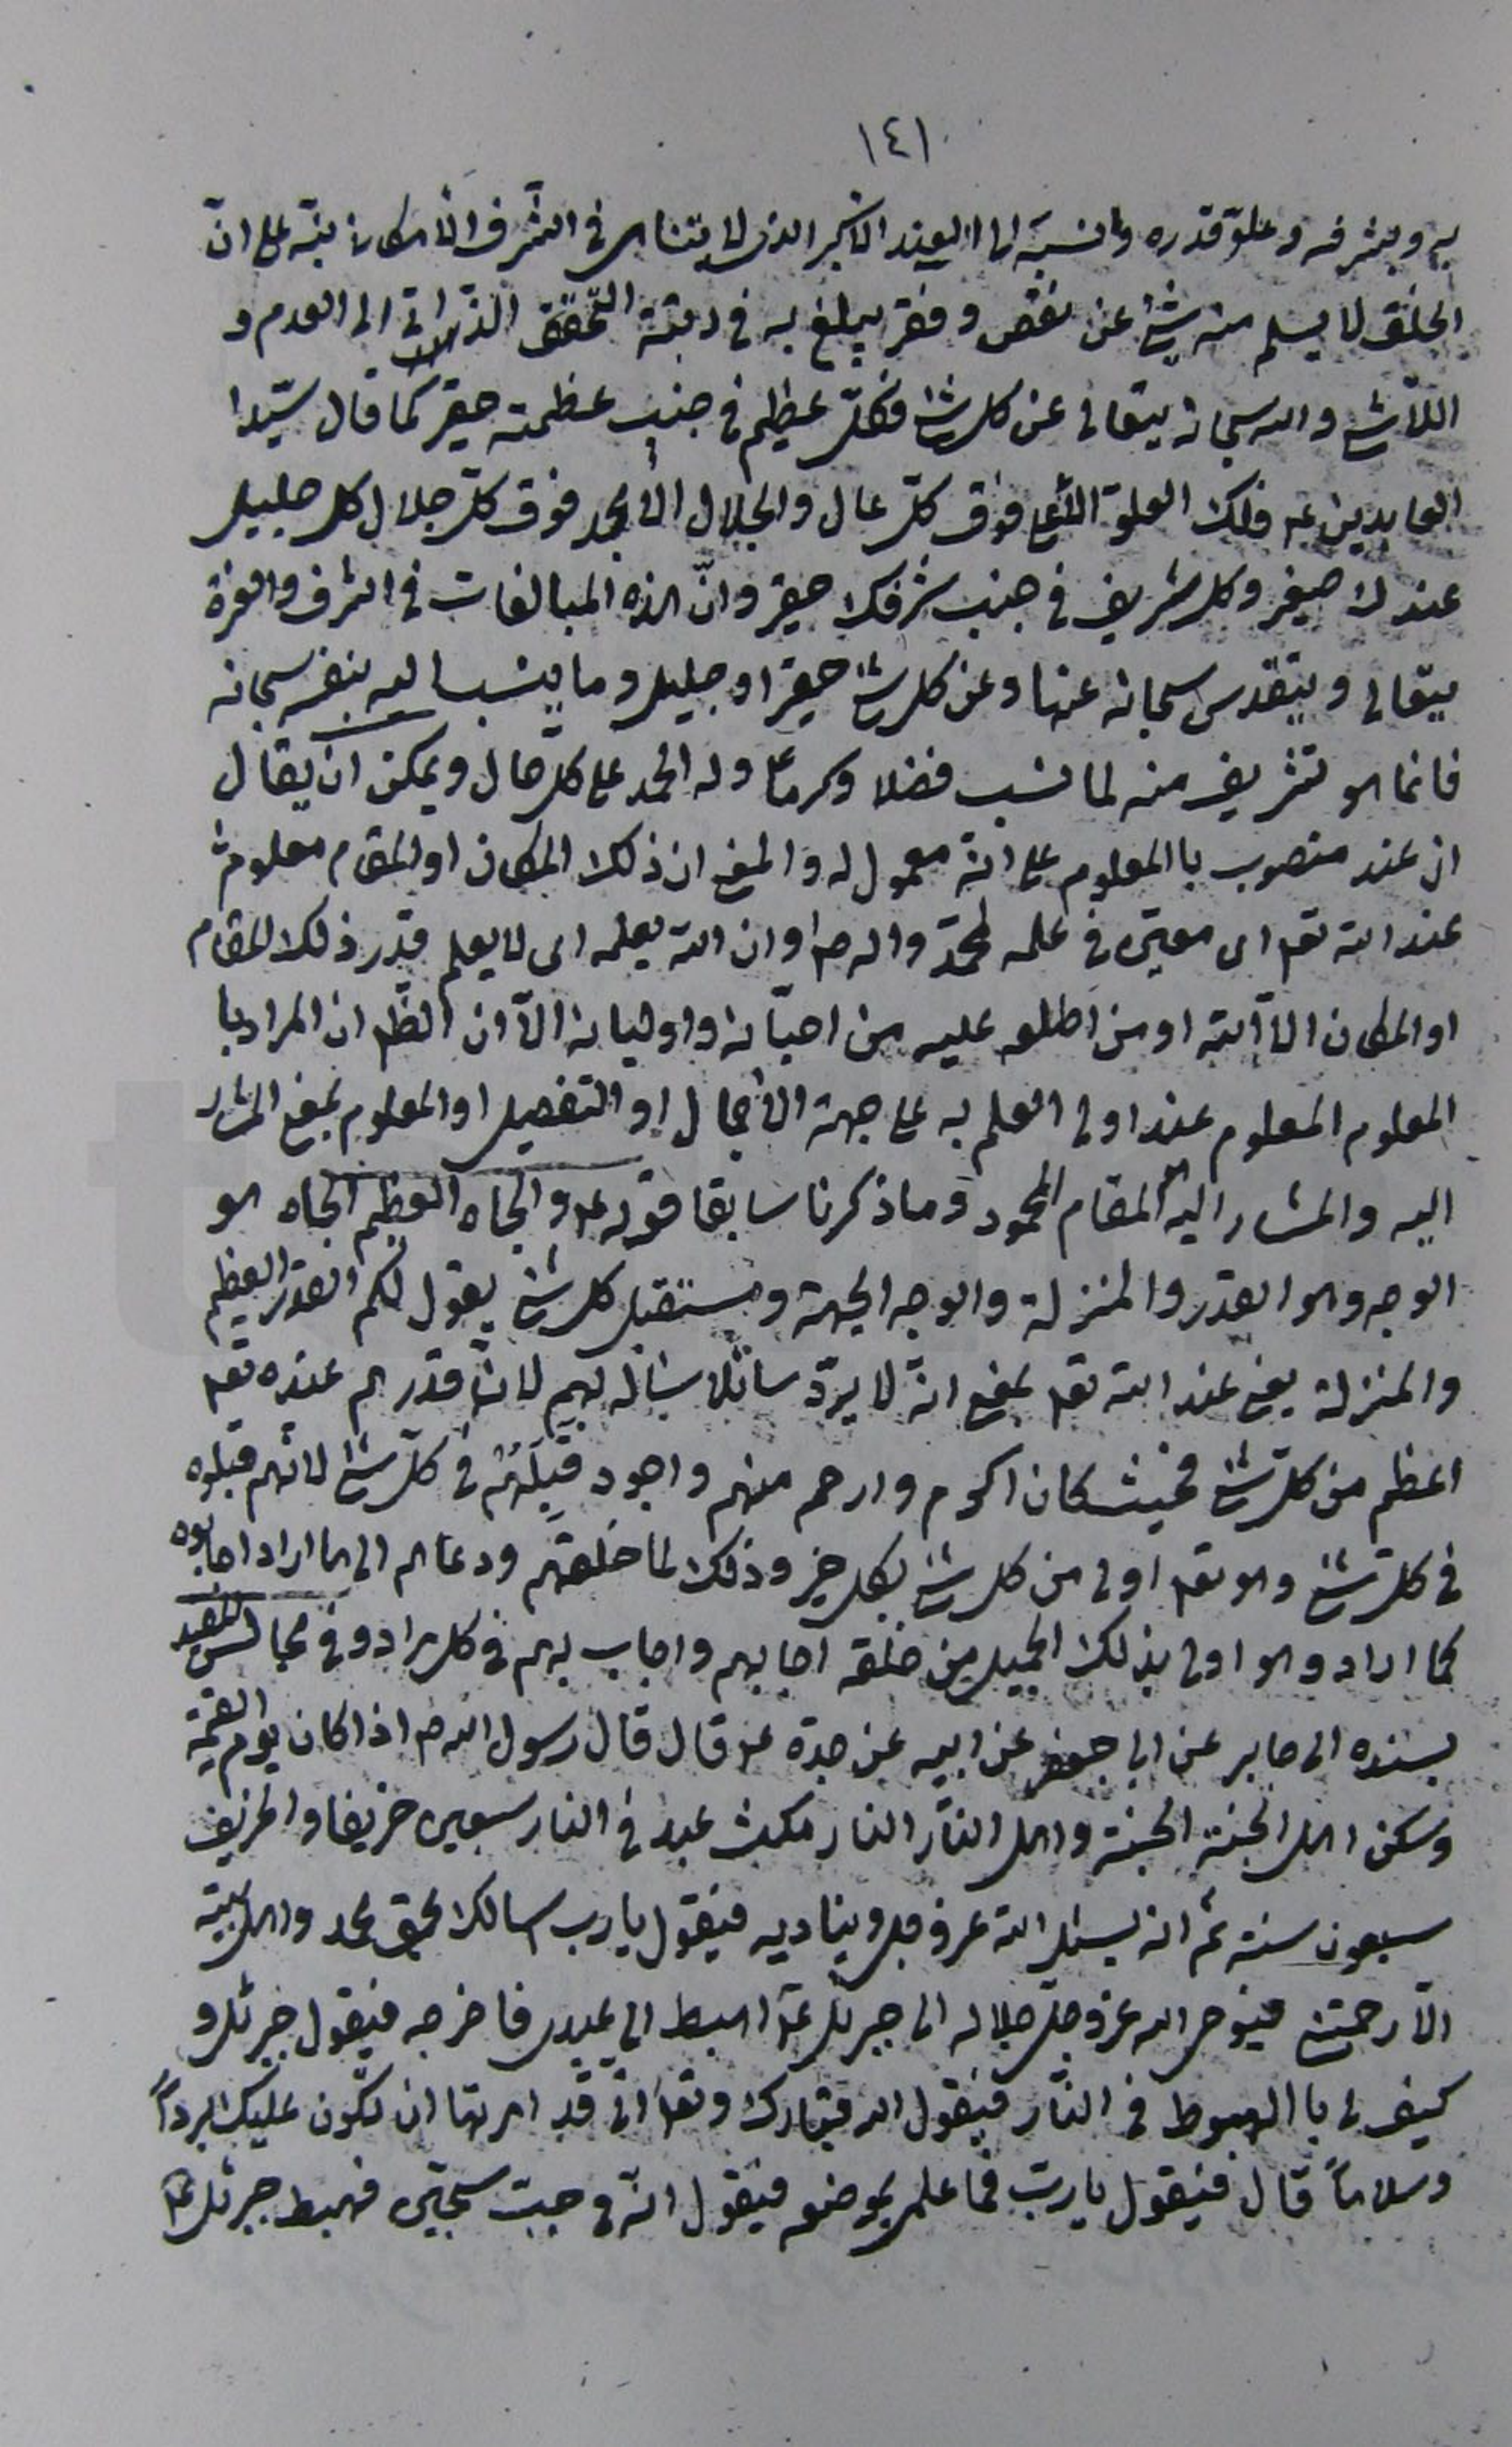 ١٤١
به وبشرفه وعلوّ قدره وما نسبة الى العند الاكبر الذى لا يتناهى فى الشّرف الأمكان نبّه على انّ
الخلق لا يسلم منه شئ عن نقص وفقر يبلغ به فى رتبة التّحقّق الذّاتى الى العدم و
اللاّشئ والله سبحانه يتعالى عن كل شئ فكلّ عظيم فى جنب عظمته حقير كما قال سيّد ا
لعابدين ع فلك العلوّ الأعلى فوق كلّ عال والجلال الأمجد فوق كلّ جلال كل جليل
عندك صغير وكل شريف فى جنب شرفك حقير وانّ هذه المبالغات فى الشرف والعزة
يتعالى ويتقدس سبحانه عنها وعن كل شئ حقير او جليل وما ينسب اليه بنفسه سبحانه
فانما هو تشريف منه لما نسب فضلا وكرما وله الحمد على كل حال ويمكن ان يقال
ان عند منصوب با المعلوم على انّه معمول له والمعنى ان ذلك المكان او المقام معلوم
عند الله تعم اى معيّن فى علمه لمحمّد واله ص او ان الله يعلمه اى لا يعلم قدر ذلك المقام
او المكان الاّ الله او من اطلعه عليه من احبّائه واوليائه الاّ ان الظّم ان المراد با
المعلوم المعلوم عند اولى العلم به على جهة الأجمال او التفصيل او المعلوم بمعنى المشار
اليه والمشار اليه المقام المحمود وما ذكرنا سابقا قوله ع والجاه العظيم الجاه هو
الوجه وهو القدر والمنزلة والوجه الجهة ومستقبل كل شئ يقول لكم القدر العظيم
والمنزلة يعنى عند الله تعم بمعنى انّه لا يردّ سائلا سأله بهم لانّ قدرهم عنده تعم
اعظم من كلّ شئ فحيث كان اكرم وارحم منهم واجود قَبِلَهُمْ فى كلّ شئ لانّهم قبلوه
فى كلّ شئ وهو تعم اولى من كل شئ بكل خير وذلك لما خلقهم ودعاهم الى ما اراد اجابوه
كما اراد وهو اولى بذلك الجميل من خلقه اجابهم واجاب بهم فى كل مراد وفى مجالس المفيد
بسنده الى جابر عن ابى جعفر عن ابيه عن جدّه ع قال قال رسول الله ص اذا كان يوم القيمة
وسكن اهل الجنة الجنة واهل النّار النار مكث عبد فى النار سبعين خريفا والخريف
سبعون سنة ثم انه يسئل الله عز وجل ويناديه فيقول يا رب اسالك بحق محمد واهل بيته
الاّ رحمتنى فيوحى الله عزوجلّ جلاله الى جبرئل ع اهبط الى عبدى فاخرجه فيقول جبرئل و
كيف لى با الهبوط فى النّار فيقول الله تبارك وتعا انّى قد امرتها ان تكون عليك برداً
وسلاماً قال فيقول يا ربّ فما علمى بموضعه فيقول انّه فى جبّ سجّين فهبط جبرئل ع